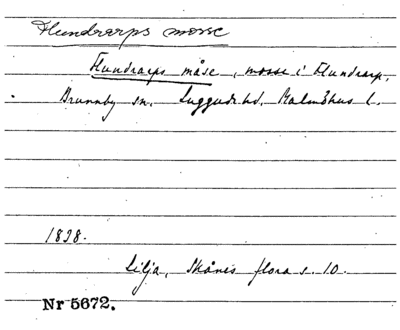 Flundrarps mosse
Flundrarps måse, mosse i Flundrarp,
Brunnby sn. Luggude hd. Malmöhus l.
1838.
Lilja, Skånes flora s. 10.
Nr 5672.